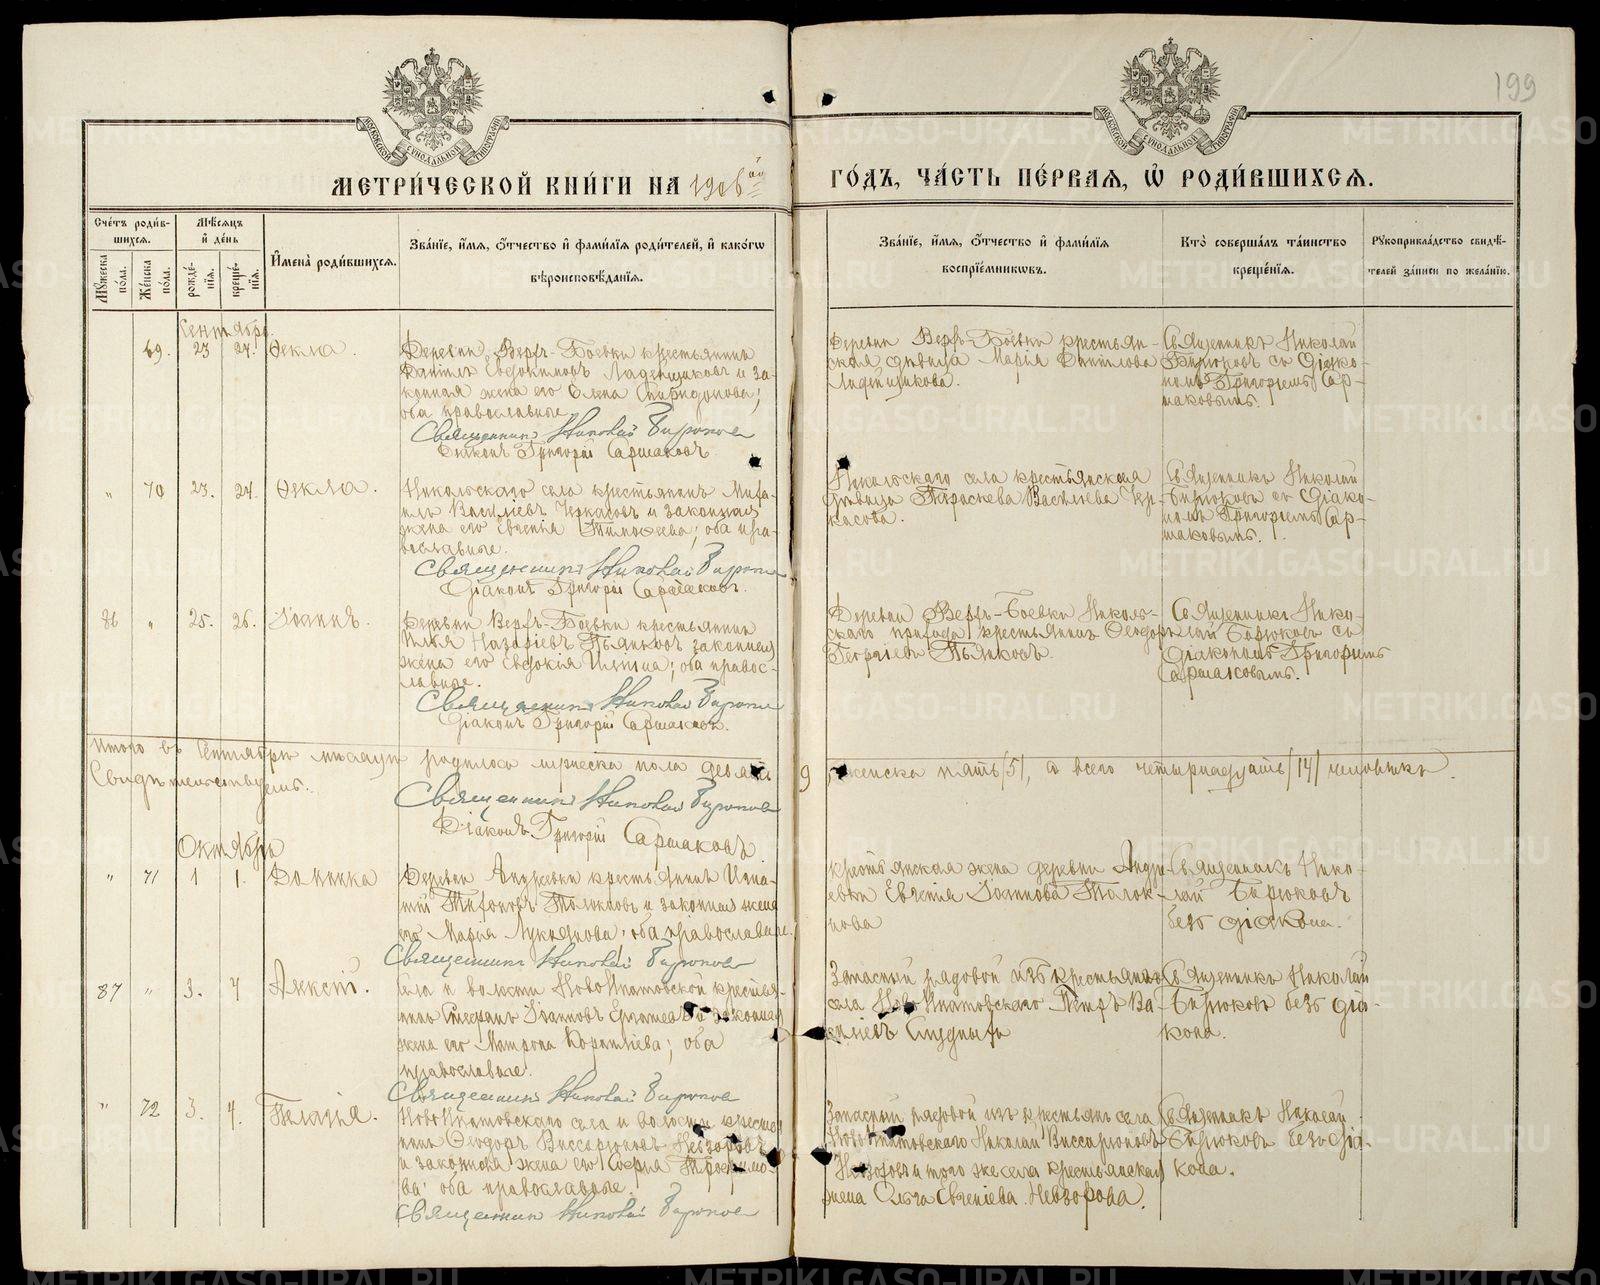 199
МЕТРИ́ЧЕСКОЙ КНИ́ГИ НА 1906ой ГО́ДЪ, ЧА́СТЬ ПЕ́РВАЯ, Ѡ҆ РОДИ́ВШИХСЯ.
Счетъ роди́вшихся.
Мужеска пола.
Женска пола.
Мѣсяцъ и день
рожденія.
крещенія.
Имена роди́вшихся.
Званіе, имя, отчество и фамилія родителей, и какогѡ
вѣроисповѣданія.
Званіе, имя, отчество и фамилія
воспріемниковъ.
Кто совершалъ таинство
крещенія.
Рукоприкладство свидѣ-
телей записи по желанію.
Сентябрь.
69. 23 24. Ѳекла.
Деревни Верхъ-Боевки крестьянинъ
Даніилъ Евдокимовъ Ладейщиковъ и за-
конная жена его Елена Спиридонова;
оба православные.
Священникъ Николай Бирюковъ
Діаконъ Григорій Саршаковъ.
Деревни Верхъ-Боевки крестьян-
ская дѣвица Марія Даніилова
Ладейщикова.
Священникъ Николай
Бирюковъ съ діако-
номъ Григоріемъ Сар-
шаковымъ.
" 70 23. 24. Ѳекла.
Никольскаго села крестьянинъ Миха-
илъ Васильевъ Черкасовъ и законная
жена его Евгенія Тимоѳеева; оба пра-
вославные.
Священникъ Николай Бирюковъ
Діаконъ Григорій Саршаковъ.
Никольскаго села крестьянская
дѣвица Параскева Васильева Чер-
касова.
Священникъ Николай
Бирюковъ съ діако-
номъ Григоріемъ Сар-
шаковымъ.
86 " 25. 26. Іоаннъ.
Деревни Верхъ-Боевки крестьянинъ
Илья Назаріевъ Пьянковъ законная
жена его Евдокія Ильина; оба правос-
лавные.
Священникъ Николай Бирюковъ
Діаконъ Григорій Саршаковъ.
Деревни Верхъ-Боевки Николь-
скаго прихода крестьянинъ Ѳеодоръ
Георгіевъ Пьянковъ.
Священникъ Нико-
лай Бирюковъ съ
діакономъ Григоріемъ
Саршаковымъ.
Итого въ Сентябрѣ мѣсяцѣ родилось мужеска пола девять 9, женска пять /5/, а всего четырнадцать /14/ человѣкъ.
Свидѣтельствуемъ.
Священникъ Николай Бирюковъ
Діаконъ Григорій Саршаковъ.
Октябрь
" 71 1 1. Домника
Деревни Андреевки крестьянинъ Игна-
тій Тихоновъ и законная жена
его Марья Лукіянова; оба православные.
Священникъ Николай Бирюковъ
Крестьянская жена деревни Андре-
евки Евгенія Іоаннова Толок-
нова
Священникъ Нико-
лай Бирюковъ
безъ діакона.
87 " 3. 4 Алексѣй.
Села и волости НовоИпатовской крестья-
нинъ Стефанъ Іоанновъ и законная
жена его Матрона Корнилиева; оба
православные.
Священникъ Николай Бирюковъ
Запасный рядовой изъ крестьянъ
села НовоИпатовскаго Петръ Ва-
сильевъ
Священникъ Николай
Бирюковъ безъ діа-
кона.
" 72 3. 4. Пелагія.
НовоИпатовскаго села и волости крестья-
нинъ Ѳеодоръ Виссаріоновъ Невзоровъ
и законная жена его Софія Трофимо-
ва; оба православные.
Священникъ Николай Бирюковъ
Запасный рядовой изъ крестьянъ села
НовоИпатовскаго Николай Виссаріоновъ
Невзоровъ и того же села крестьянская
жена Ольга Евгеніева Невзорова.
Священникъ Николай
Бирюковъ безъ діа-
кона.